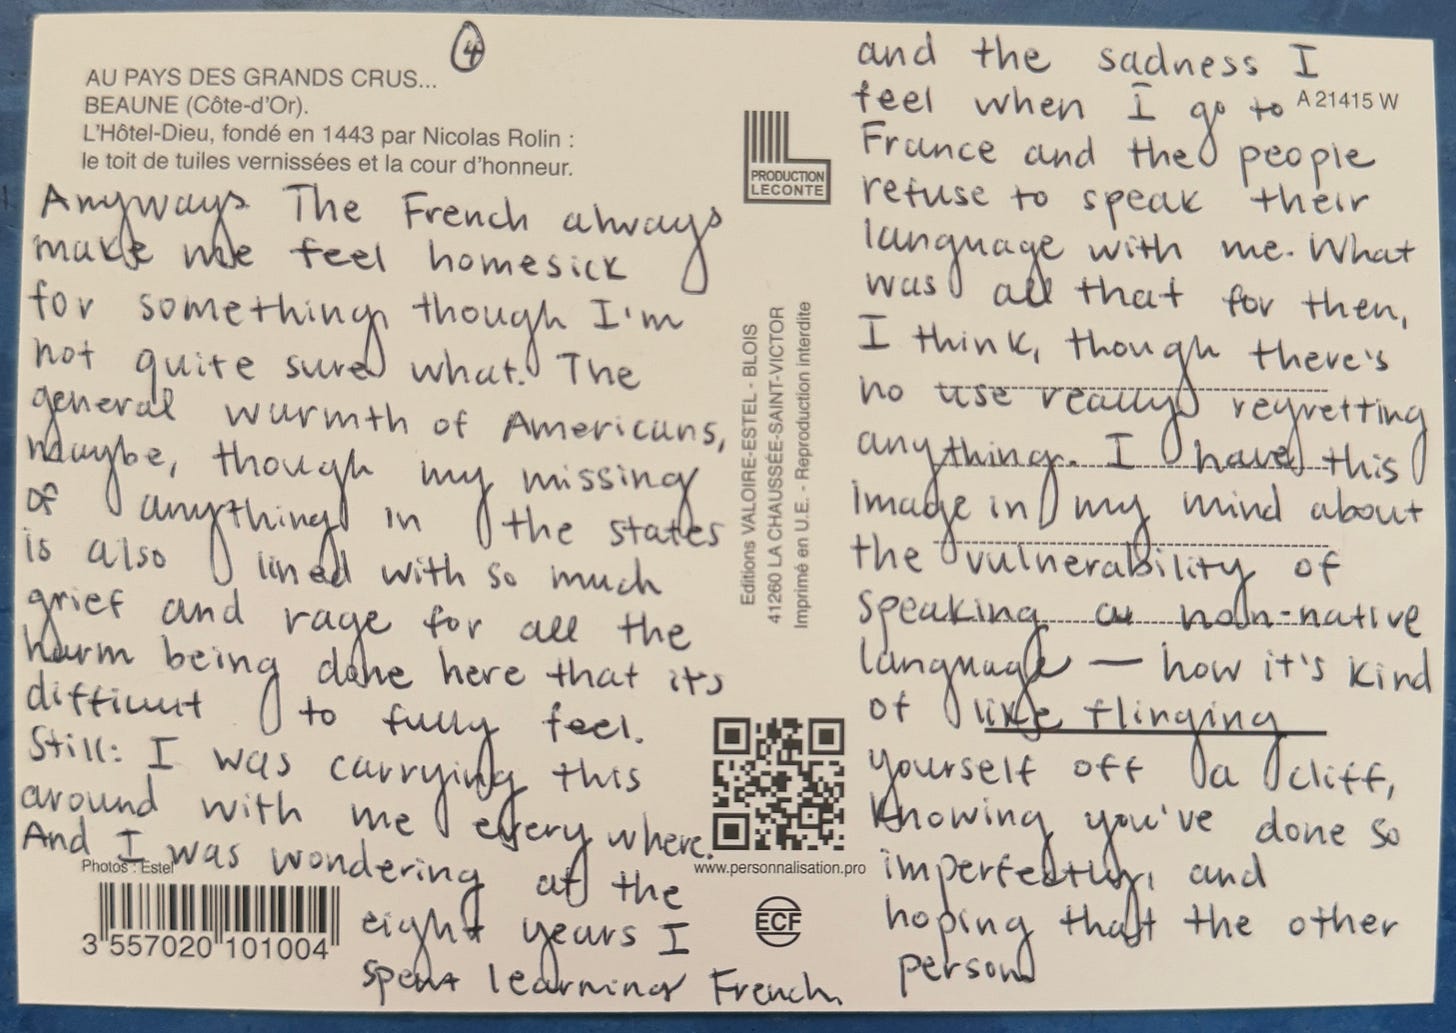 ④
AU PAYS DES GRANDS CRUS...
BEAUNE (Côte-d'Or).
L'Hôtel-Dieu, fondé en 1443 par Nicolas Rolin :
le toit de tuiles vernissées et la cour d'honneur.
Anyways The French always
make me feel homesick
for something though I'm
not quite sure what. The
general warmth of Americans,
maybe, though my missing
of anything in the states
is also lined with so much
grief and rage for all the
harm being done here that it's
difficult to fully feel.
Still: I was carrying this
around with me everywhere.
And I was wondering at the
eight years I
spent learning French
Photos : Estel
3 557020 101004
PRODUCTION
LECONTE
Editions VALOIRE-ESTEL - BLOIS
41260 LA CHAUSSÉE-SAINT-VICTOR
Imprimé en U.E. - Reproduction interdite
www.personnalisation.pro
ECF
A 21415 W
and the sadness I
feel when I go to
France and the people
refuse to speak their
language with me. What
was all that for then,
I think, though there's
no use really regretting
anything. I have this
image in my mind about
the vulnerability of
speaking a non-native
language — how it's kind
of like flinging
yourself off a cliff,
knowing you've done so
imperfectly, and
hoping that the other
person